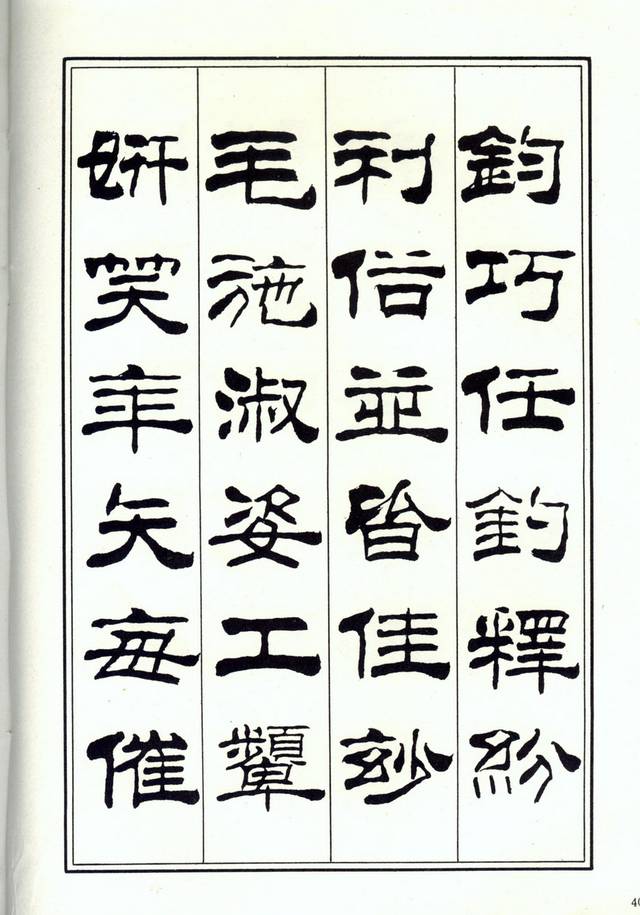 鈞巧任釣釋紛
利俗並皆佳玅
毛施淑姿工顰
妍笑年矢每催